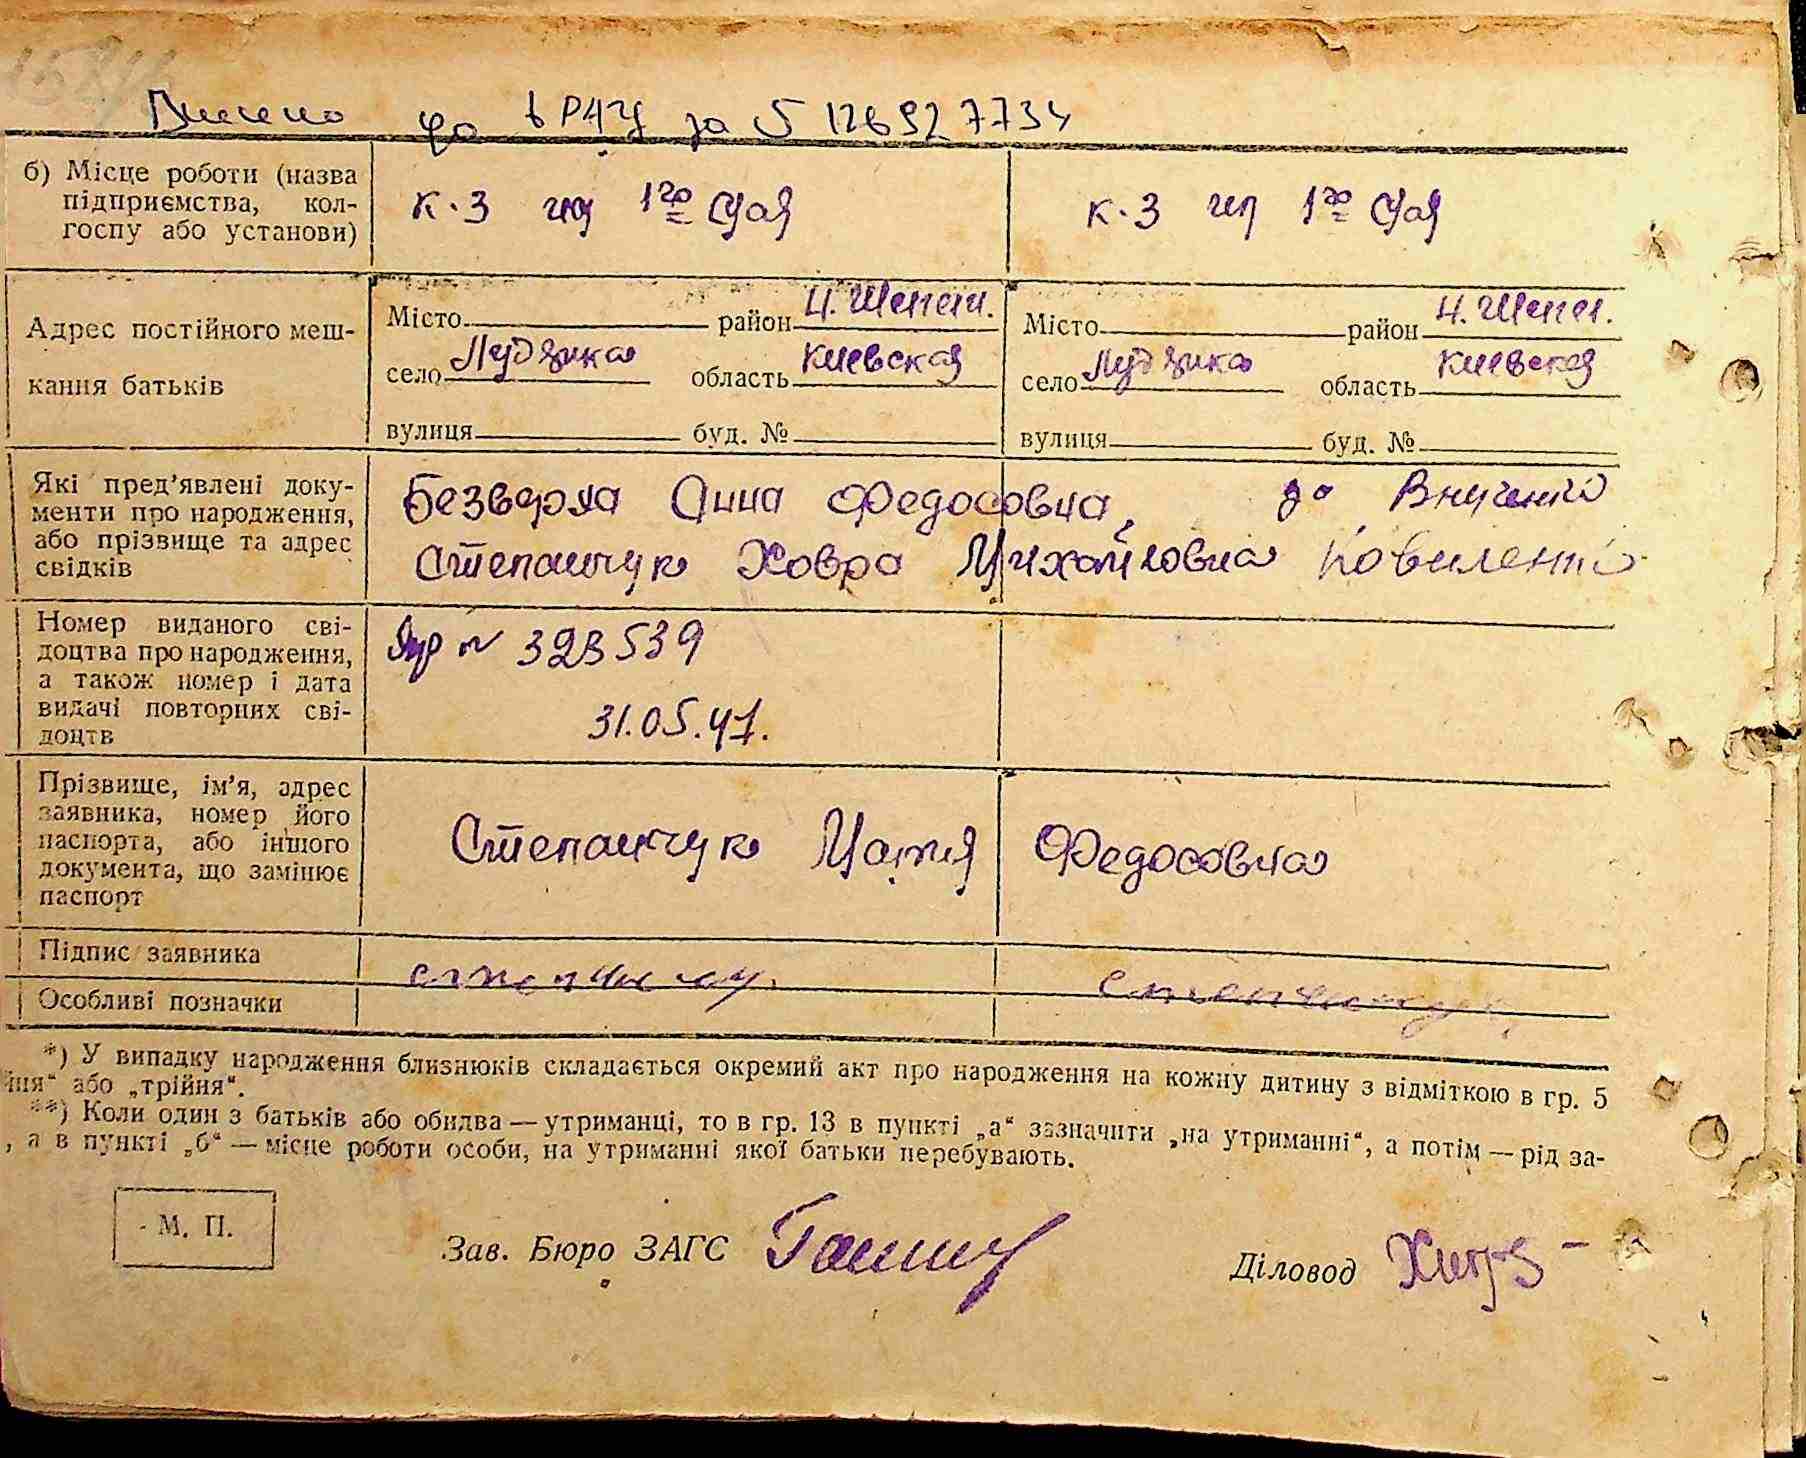 Внесено до ДРАЦ за 5 126927734
б) Місце роботи (назва
підприємства, кол-
госпу або установи)
К-З им 1го Мая
К-З им 1го Мая
Адрес постійного меш-
кання батьків
Місто район Н. Шепел.
село область Киевская
вулиця буд. №
Місто район Н. Шепел.
село область Киевская
вулиця буд. №
Які пред’явлені доку-
менти про народження,
або прізвище та адрес
свідків
Безверха Анна Федосовна,
Степанчук Ховра Михайловна
Номер виданого сві-
доцтва про народження,
а також номер і дата
видачі повторних сві-
доцтв
№ 323539
31.05.47.
Прізвище, ім’я, адрес
заявника, номер його
паспорта, або іншого
документа, що замінює
паспорт
Степанчук Мария Федосовна
Підпис заявника
Особливі позначки
*) У випадку народження близнюків складається окремий акт про народження на кожну дитину з відміткою в гр. 5
йня“ або „трійня“.
**) Коли один з батьків або обидва — утриманці, то в гр. 13 в пункті „а“ зазначити „на утриманні“, а потім — рід за-
, а в пункті „б“ — місце роботи особи, на утриманні якої батьки перебувають.
М. П.
Зав. Бюро ЗАГС
Діловод